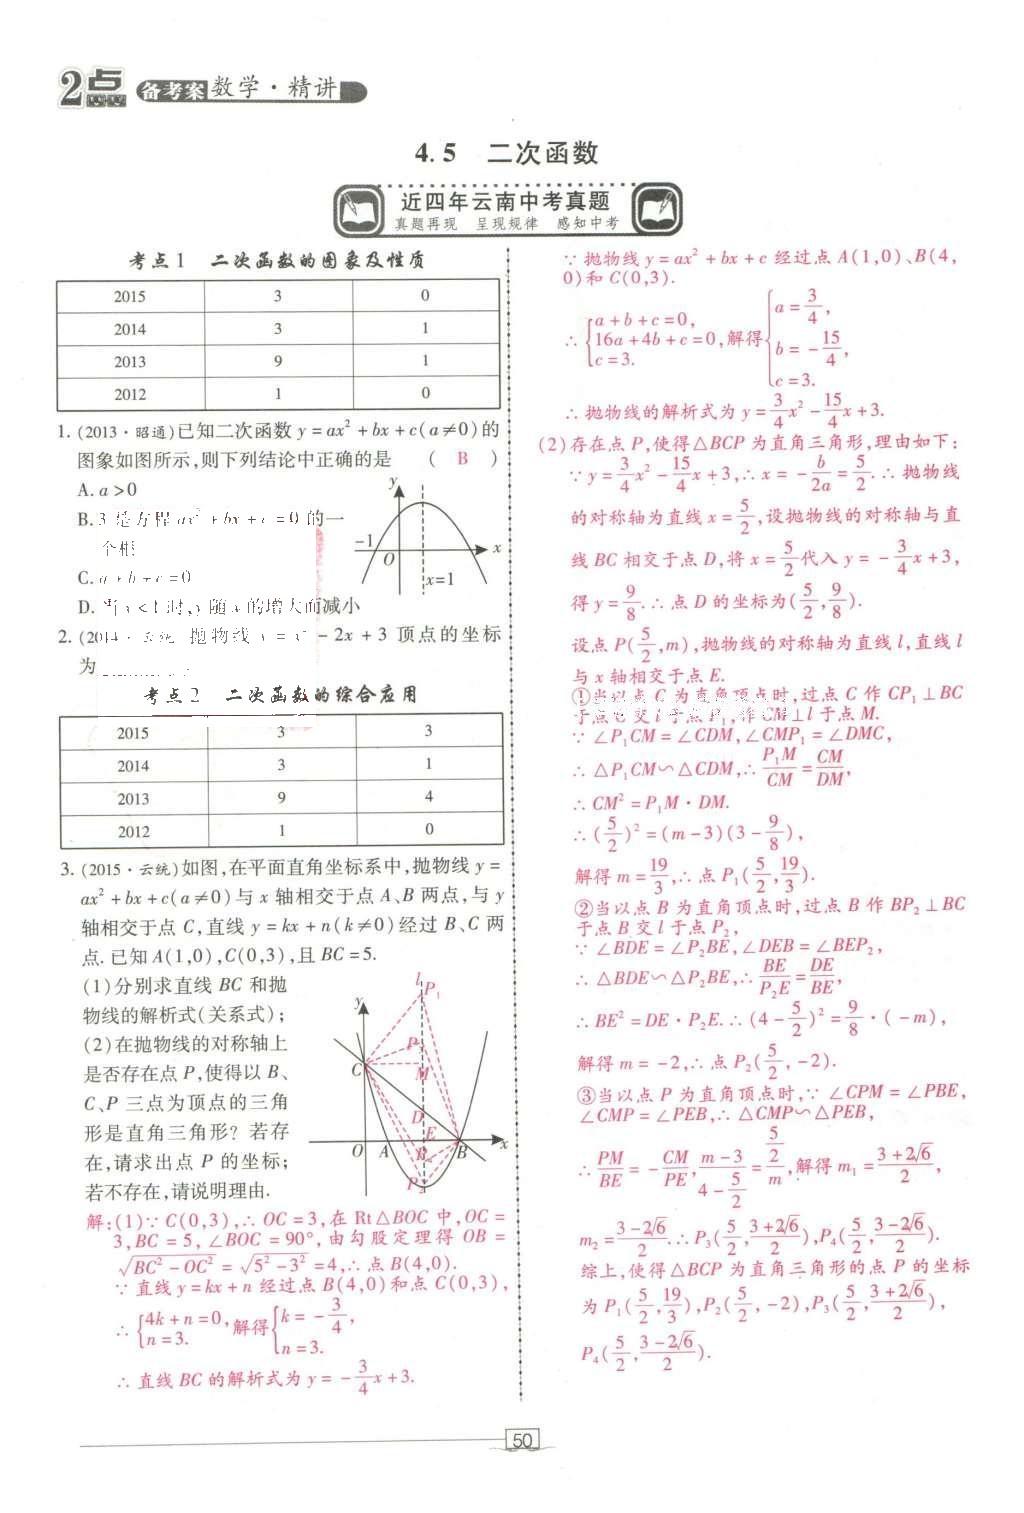 2点 备考案 数学·精讲
4.5 二次函数
近四年云南中考真题
真题再现 呈现规律 感知中考
考点1 二次函数的图象及性质
2015 3 0
2014 3 1
2013 9 1
2012 1 0
1.(2013·昭通)已知二次函数 y=ax²+bx+c(a≠0)的
图象如图所示,则下列结论中正确的是 ( B )
A. a>0
B. 3 是方程 ax²+bx+c=0 的一
个根
C. a+b+c=0
D. 当 x<1 时,y 随 x 的增大而减小
y
-1 O x
x=1
2.(2014·云统)抛物线 y=x²-2x+3 顶点的坐标
为
考点2 二次函数的综合应用
2015 3 3
2014 3 1
2013 9 4
2012 1 0
3.(2015·云统)如图,在平面直角坐标系中,抛物线 y=
ax²+bx+c(a≠0)与 x 轴相交于点 A、B 两点,与 y
轴相交于点 C,直线 y=kx+n(k≠0)经过 B、C 两
点.已知 A(1,0),C(0,3),且 BC=5.
(1)分别求直线 BC 和抛
物线的解析式(关系式);
(2)在抛物线的对称轴上
是否存在点 P,使得以 B、
C、P 三点为顶点的三角
形是直角三角形?若存
在,请求出点 P 的坐标;
若不存在,请说明理由.
l
P₁
y
C
M
D
E
O A B x
解:(1)∵ C(0,3),∴ OC=3,在 Rt△BOC 中,OC=
3,BC=5,∠BOC=90°,由勾股定理得 OB=
√(BC²-OC²)=√(5²-3²)=4,∴ 点 B(4,0).
∵ 直线 y=kx+n 经过点 B(4,0)和点 C(0,3),
∴ {4k+n=0, n=3. 解得 {k=-3/4, n=3.
∴ 直线 BC 的解析式为 y=-3/4x+3.
∵ 抛物线 y=ax²+bx+c 经过点 A(1,0)、B(4,
0)和 C(0,3).
∴ {a+b+c=0, 16a+4b+c=0, c=3. 解得 {a=3/4, b=-15/4, c=3.
∴ 抛物线的解析式为 y=3/4x²-15/4x+3.
(2)存在点 P,使得△BCP 为直角三角形,理由如下:
∵ y=3/4x²-15/4x+3,∴ x=-b/2a=5/2.∴ 抛物线
的对称轴为直线 x=5/2,设抛物线的对称轴与直
线 BC 相交于点 D,将 x=5/2代入 y=-3/4x+3,
得 y=9/8.∴ 点 D 的坐标为(5/2,9/8).
设点 P(5/2,m),抛物线的对称轴为直线 l,直线 l
与 x 轴相交于点 E.
①当以点 C 为直角顶点时,过点 C 作 CP₁⊥BC
于点 C 交 l 于点 P₁,作 CM⊥l 于点 M.
∵ ∠P₁CM=∠CDM,∠CMP₁=∠DMC,
∴ △P₁CM∽△CDM,∴ P₁M/CM=CM/DM,
∴ CM²=P₁M·DM.
∴ (5/2)²=(m-3)(3-9/8),
解得 m=19/3,∴ 点 P₁(5/2,19/3).
②当以点 B 为直角顶点时,过点 B 作 BP₂⊥BC
于点 B 交 l 于点 P₂,
∵ ∠BDE=∠P₂BE,∠DEB=∠BEP₂,
∴ △BDE∽△P₂BE,∴ BE/P₂E=DE/BE,
∴ BE²=DE·P₂E.∴ (4-5/2)²=9/8·(-m),
解得 m=-2,∴ 点 P₂(5/2,-2).
③当以点 P 为直角顶点时,∵ ∠CPM=∠PBE,
∠CMP=∠PEB,∴ △CMP∽△PEB,
∴ PM/BE=-CM/PE,(m-3)/(4-5/2)=(5/2)/m,解得 m₁=(3+2√6)/2,
m₂=(3-2√6)/2.∴ P₃(5/2,(3+2√6)/2),P₄(5/2,(3-2√6)/2).
综上,使得△BCP 为直角三角形的点 P 的坐标
为 P₁(5/2,19/3),P₂(5/2,-2),P₃(5/2,(3+2√6)/2),
P₄(5/2,(3-2√6)/2).
50